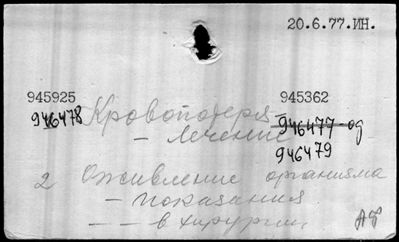 20.6.77.ИН.
945925 945362
946478 Кровопотеря 946477-од
- лечение 946479
2 Оживление организма
- показания
- - в хирургии
АФ